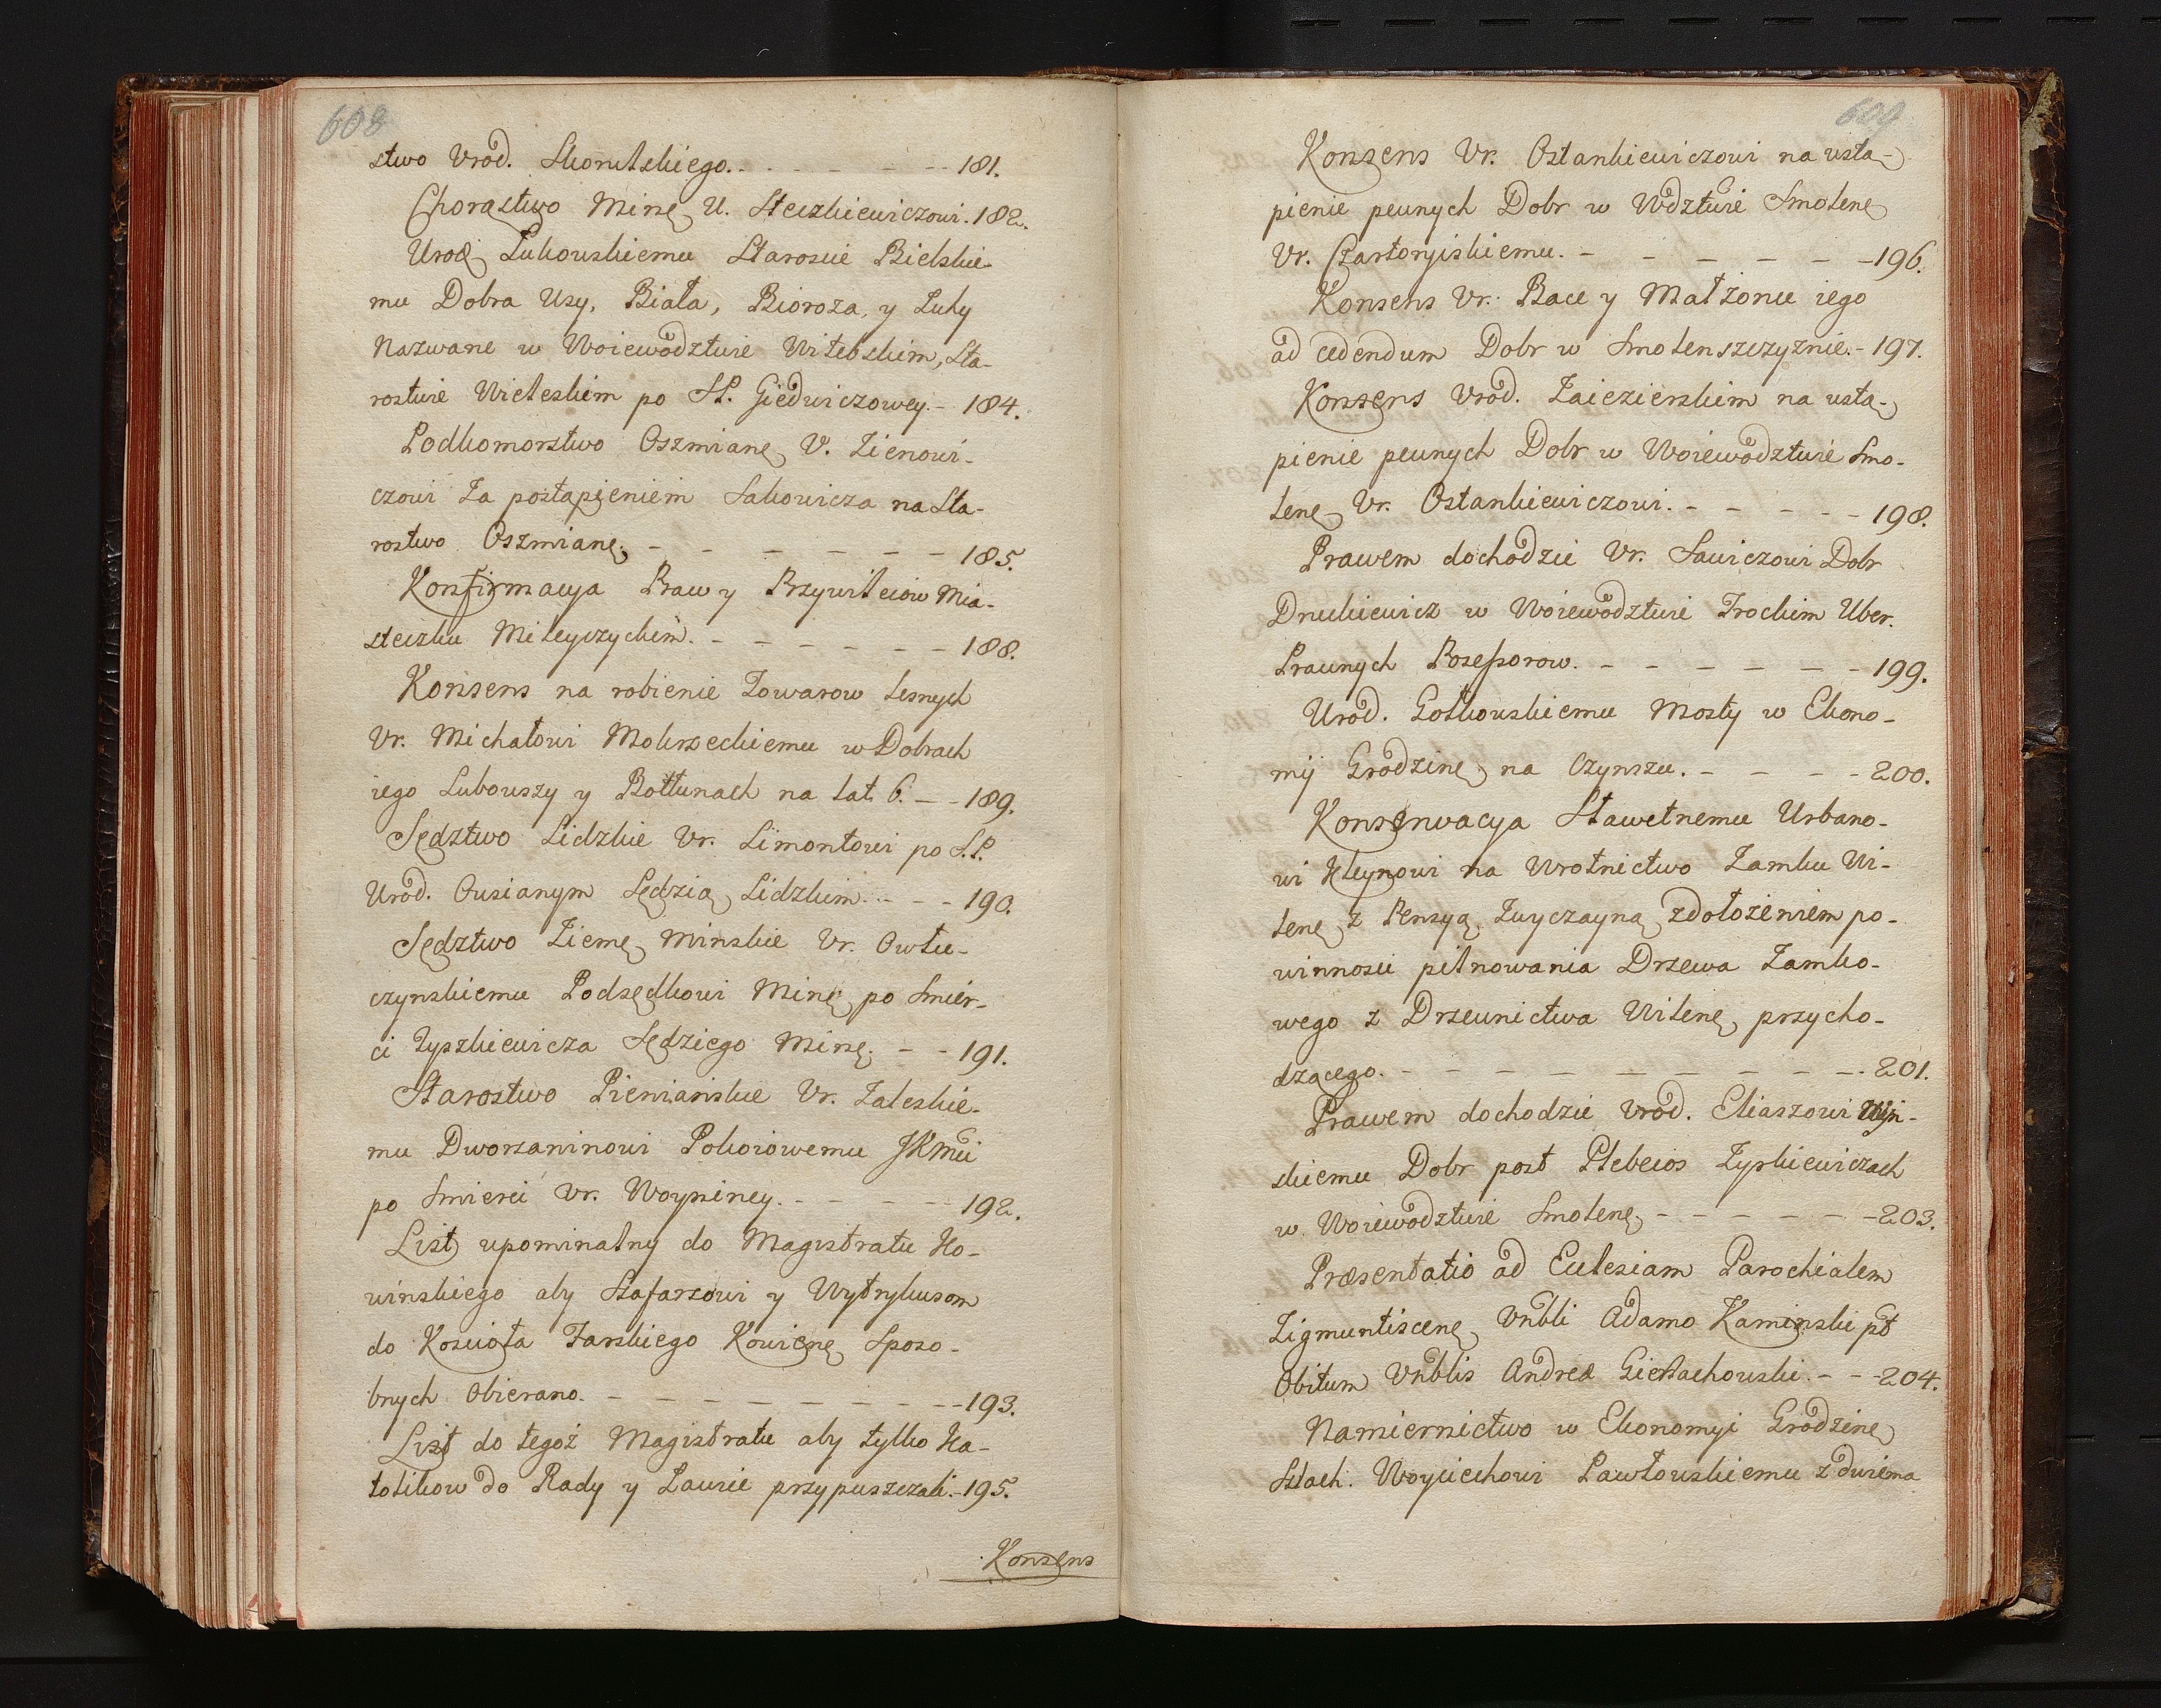 608
stwo Urod. Skorulskiego. - - - - - - 181.
Chorąstwo Minę U. Steczkiewiczowi. 182.
Urod Lukowskiemu Staroscie Bielskie-
mu Dobra Usy, Biała, Bioroza, y Luky
Nazwane w Woiewodztwie Witebskim, Sta-
rostwie Wieleskim po Sł. Giedwiczowey. - 184.
Podkomorstwo Oszmianę V. Zienowi-
czowi Za postąpieniem Sakowicza na Sta-
rostwo Oszmianę. - - - - - - - 185.
Konfirmacya Praw y Przywileiow Mia-
steczku Mileyczyckim. - - - - - - 188.
Konsens na robienie Towarow lesnych
Vr. Michałowi Mokrzeckiemu w Dobrach
iego Lubouszy y Bołłunach na lat 6. - - 189.
Sędztwo Lidzkie Vr. Limontowi po S.P.
Urod. Owsianym Sędzią Lidzkim. - - - 190.
Sędztwo Ziemę Minskie Vr. Owłu-
czynskiemu Podsędkowi Minę po Smier-
ci Zyszkiewicza Sędziego Minę. - - 191.
Starostwo Pieniańskie Vr. Zaleskie-
mu Dworzaninowi Pokoiowemu JKMci
po Smierci Vr. Woyniney. - - - - - 192.
List upominalny do Magistratu Ko-
winskiego aby Szafarzowi y Wytrykusom
do Koscioła Farskiego Kowienę Sposo-
bnych Obierano. - - - - - - - - - 193.
List do tegoż Magistratu aby tylko Ka-
tolikow do Rady y Ławie przypuszczali. - 195.
Konsens
609
Konsens Vr. Ostankiewiczowi na ustą-
pienie pewnych Dobr w Wdztwie Smolenę
Vr. Czartoryiskiemu. - - - - - - - 196.
Konsens Vr. Bace y Małżonce iego
ad cedendum Dobr w Smolenszczyznie. - 197.
Konsens Vrod. Zaiezierskim na ustą-
pienie pewnych Dobr w Woiewodztwie Smo-
lenę Vr. Ostankiewiczowi. - - - - - 198.
Prawem dochodzic Vr. Sawiczowi Dobr
Druckiewicz w Woiewodztwie Trockim Uber.
Prawnych Possessorow. - - - - - - - 199.
Urod. Gotkowskiemu Mosty w Ekono-
mij Grodzinę na Czynszu. - - - - 200.
Konserwacya Sławetnemu Urbano-
wi Kleynowi na Wrotnictwo Zamku Wi-
lenę z Pensyą Zwyczayną z dołożeniem po-
winnosci pilnowania Drzewa Zamko-
wego z Drzewnictwa Wilenę przycho-
dzącego. - - - - - - - - - - - 201.
Prawem dochodzic Vrod. Eliaszowi
skiemu Dobr post Plebeios Zyskiewiczach
w Woiewodztwie Smolenę. - - - - - - 203.
Præsentatio ad Ecclesiam Parochialem
Zigmuntiscenę Vnbli Adamo Kaminski pt
Obitum Vnblis Andreæ Gierłachowski. - - - 204.
Namiernictwo w Ekonomyi Grodzinę
Szlach. Woyciechowi Pawłowskiemu z dwiema